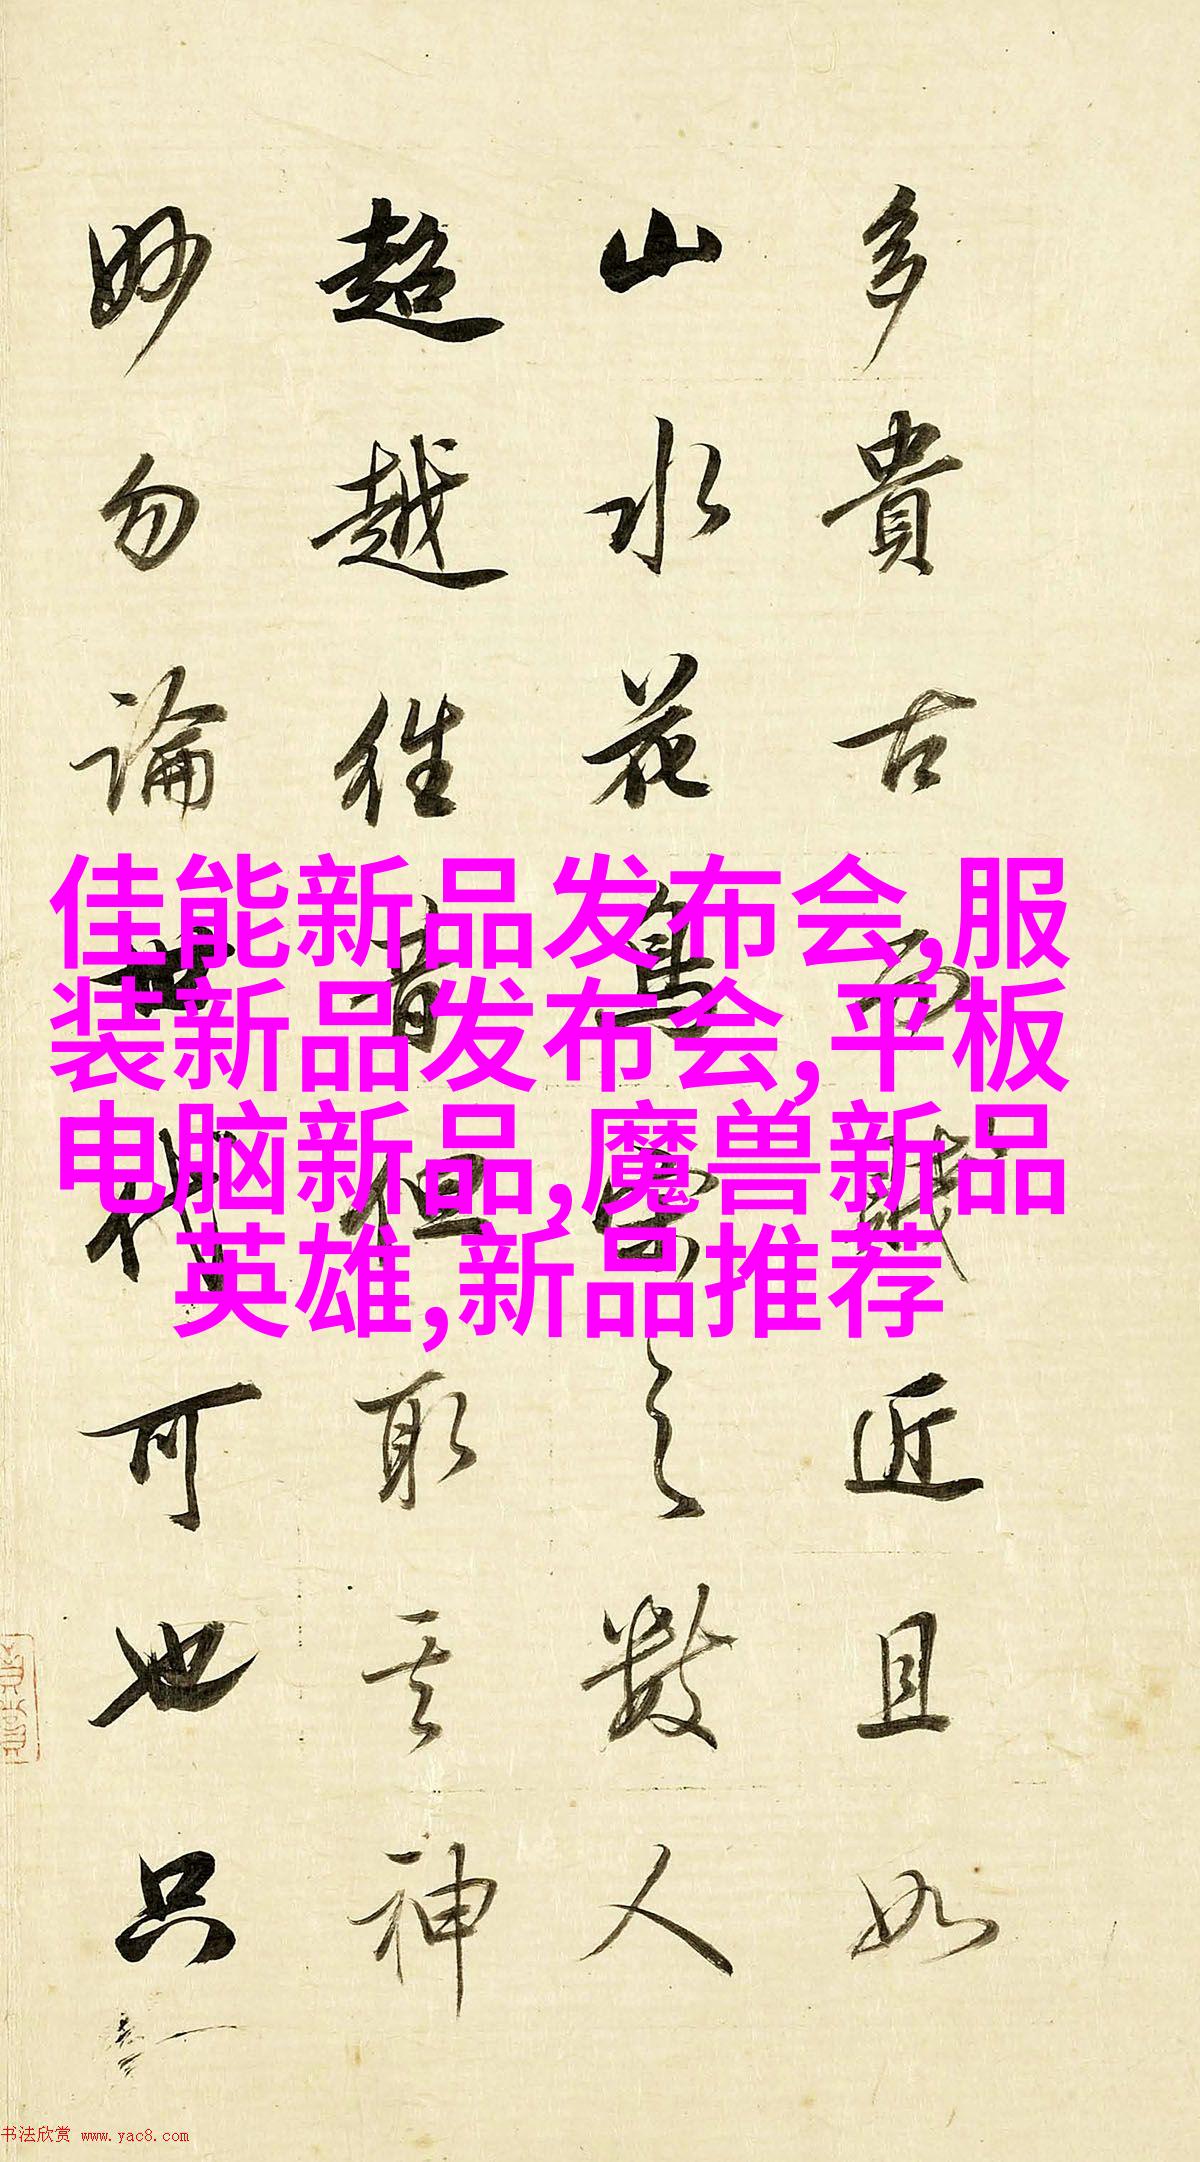 多貴古而賤近且如
山水花鳥雲之數人
超越往昔但取其神
妙勿論世代可也只
佳能新品发布会,服
装新品发布会,平板
电脑新品,魔兽新品
英雄,新品推荐
书法欣赏 www.yac8.com